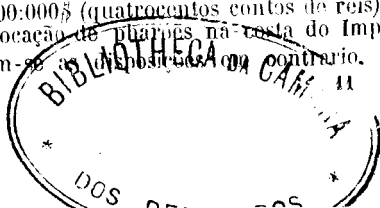 00:000$ (quatrocentos contos de reis)
ocação de pharões na costa do Imp
m-se as disposições em contrario.
11
BIBLIOTHECA DA CAMARA
DOS DEPUTADOS